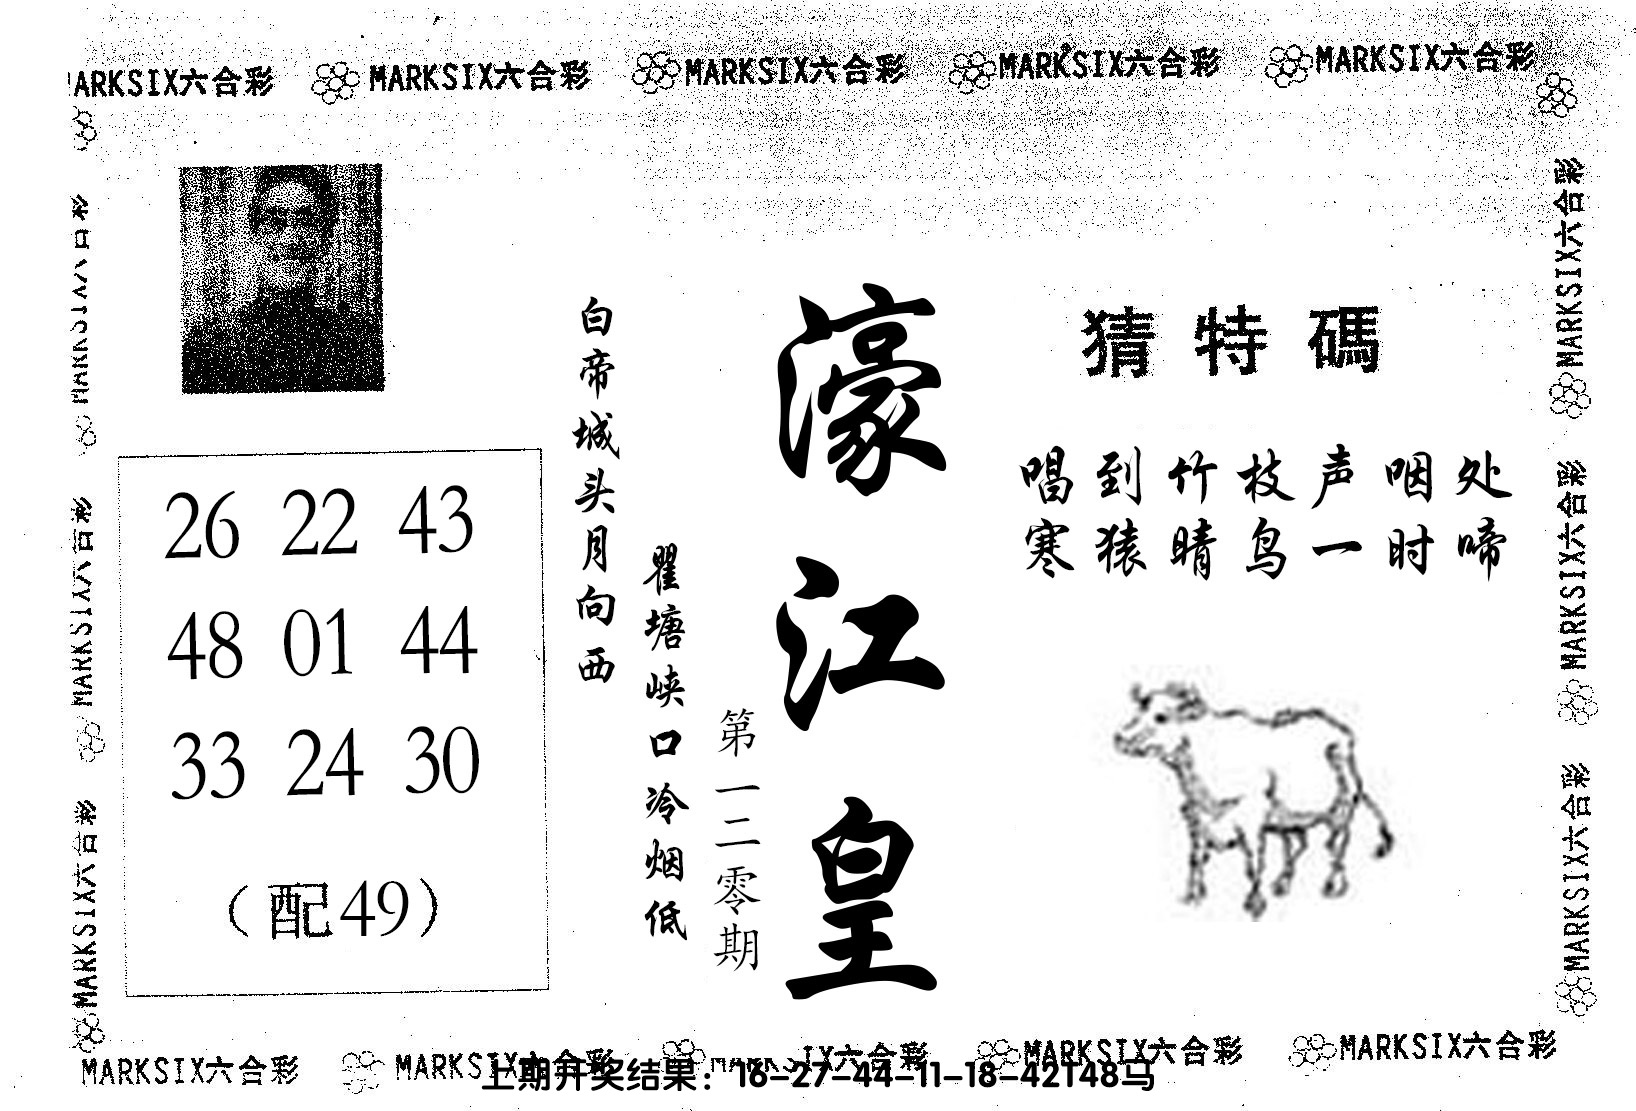 MARKSIX六合彩 MARKSIX六合彩 MARKSIX六合彩 MARKSIX六合彩 MARKSIX六合彩
MARKSIX六合彩
MARKSIX六合彩
MARKSIX六合彩
26 22 43
48 01 44
33 24 30
（配49）
白帝城头月向西
瞿塘峡口冷烟低
第一二零期
濠江皇
猜特碼
唱到竹枝声咽处
寒猿晴鸟一时啼
MARKSIX六合彩
MARKSIX六合彩
MARKSIX六合彩
MARKSIX六合彩 MARKSIX六合彩 MARKSIX六合彩 MARKSIX六合彩 MARKSIX六合彩
上期开奖结果：16-27-44-11-18-42T48马